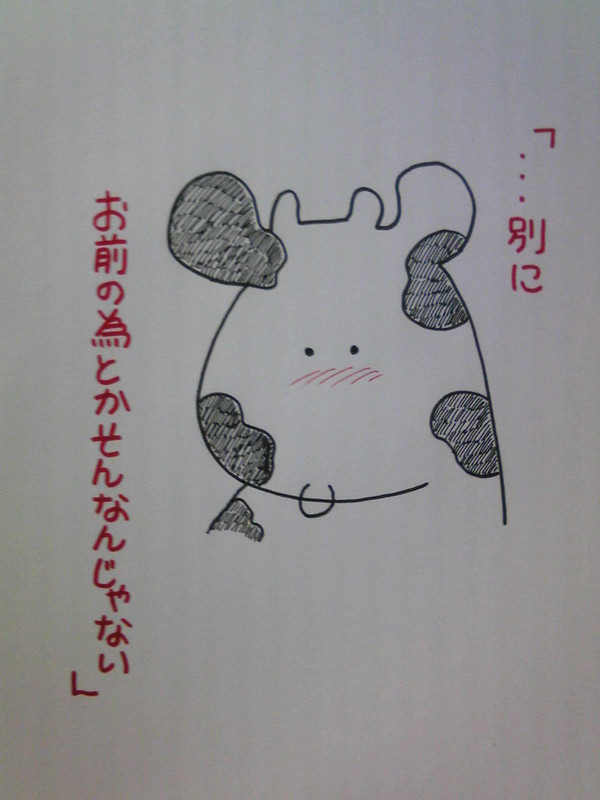 「…別に
お前の為とかそんなんじゃない」